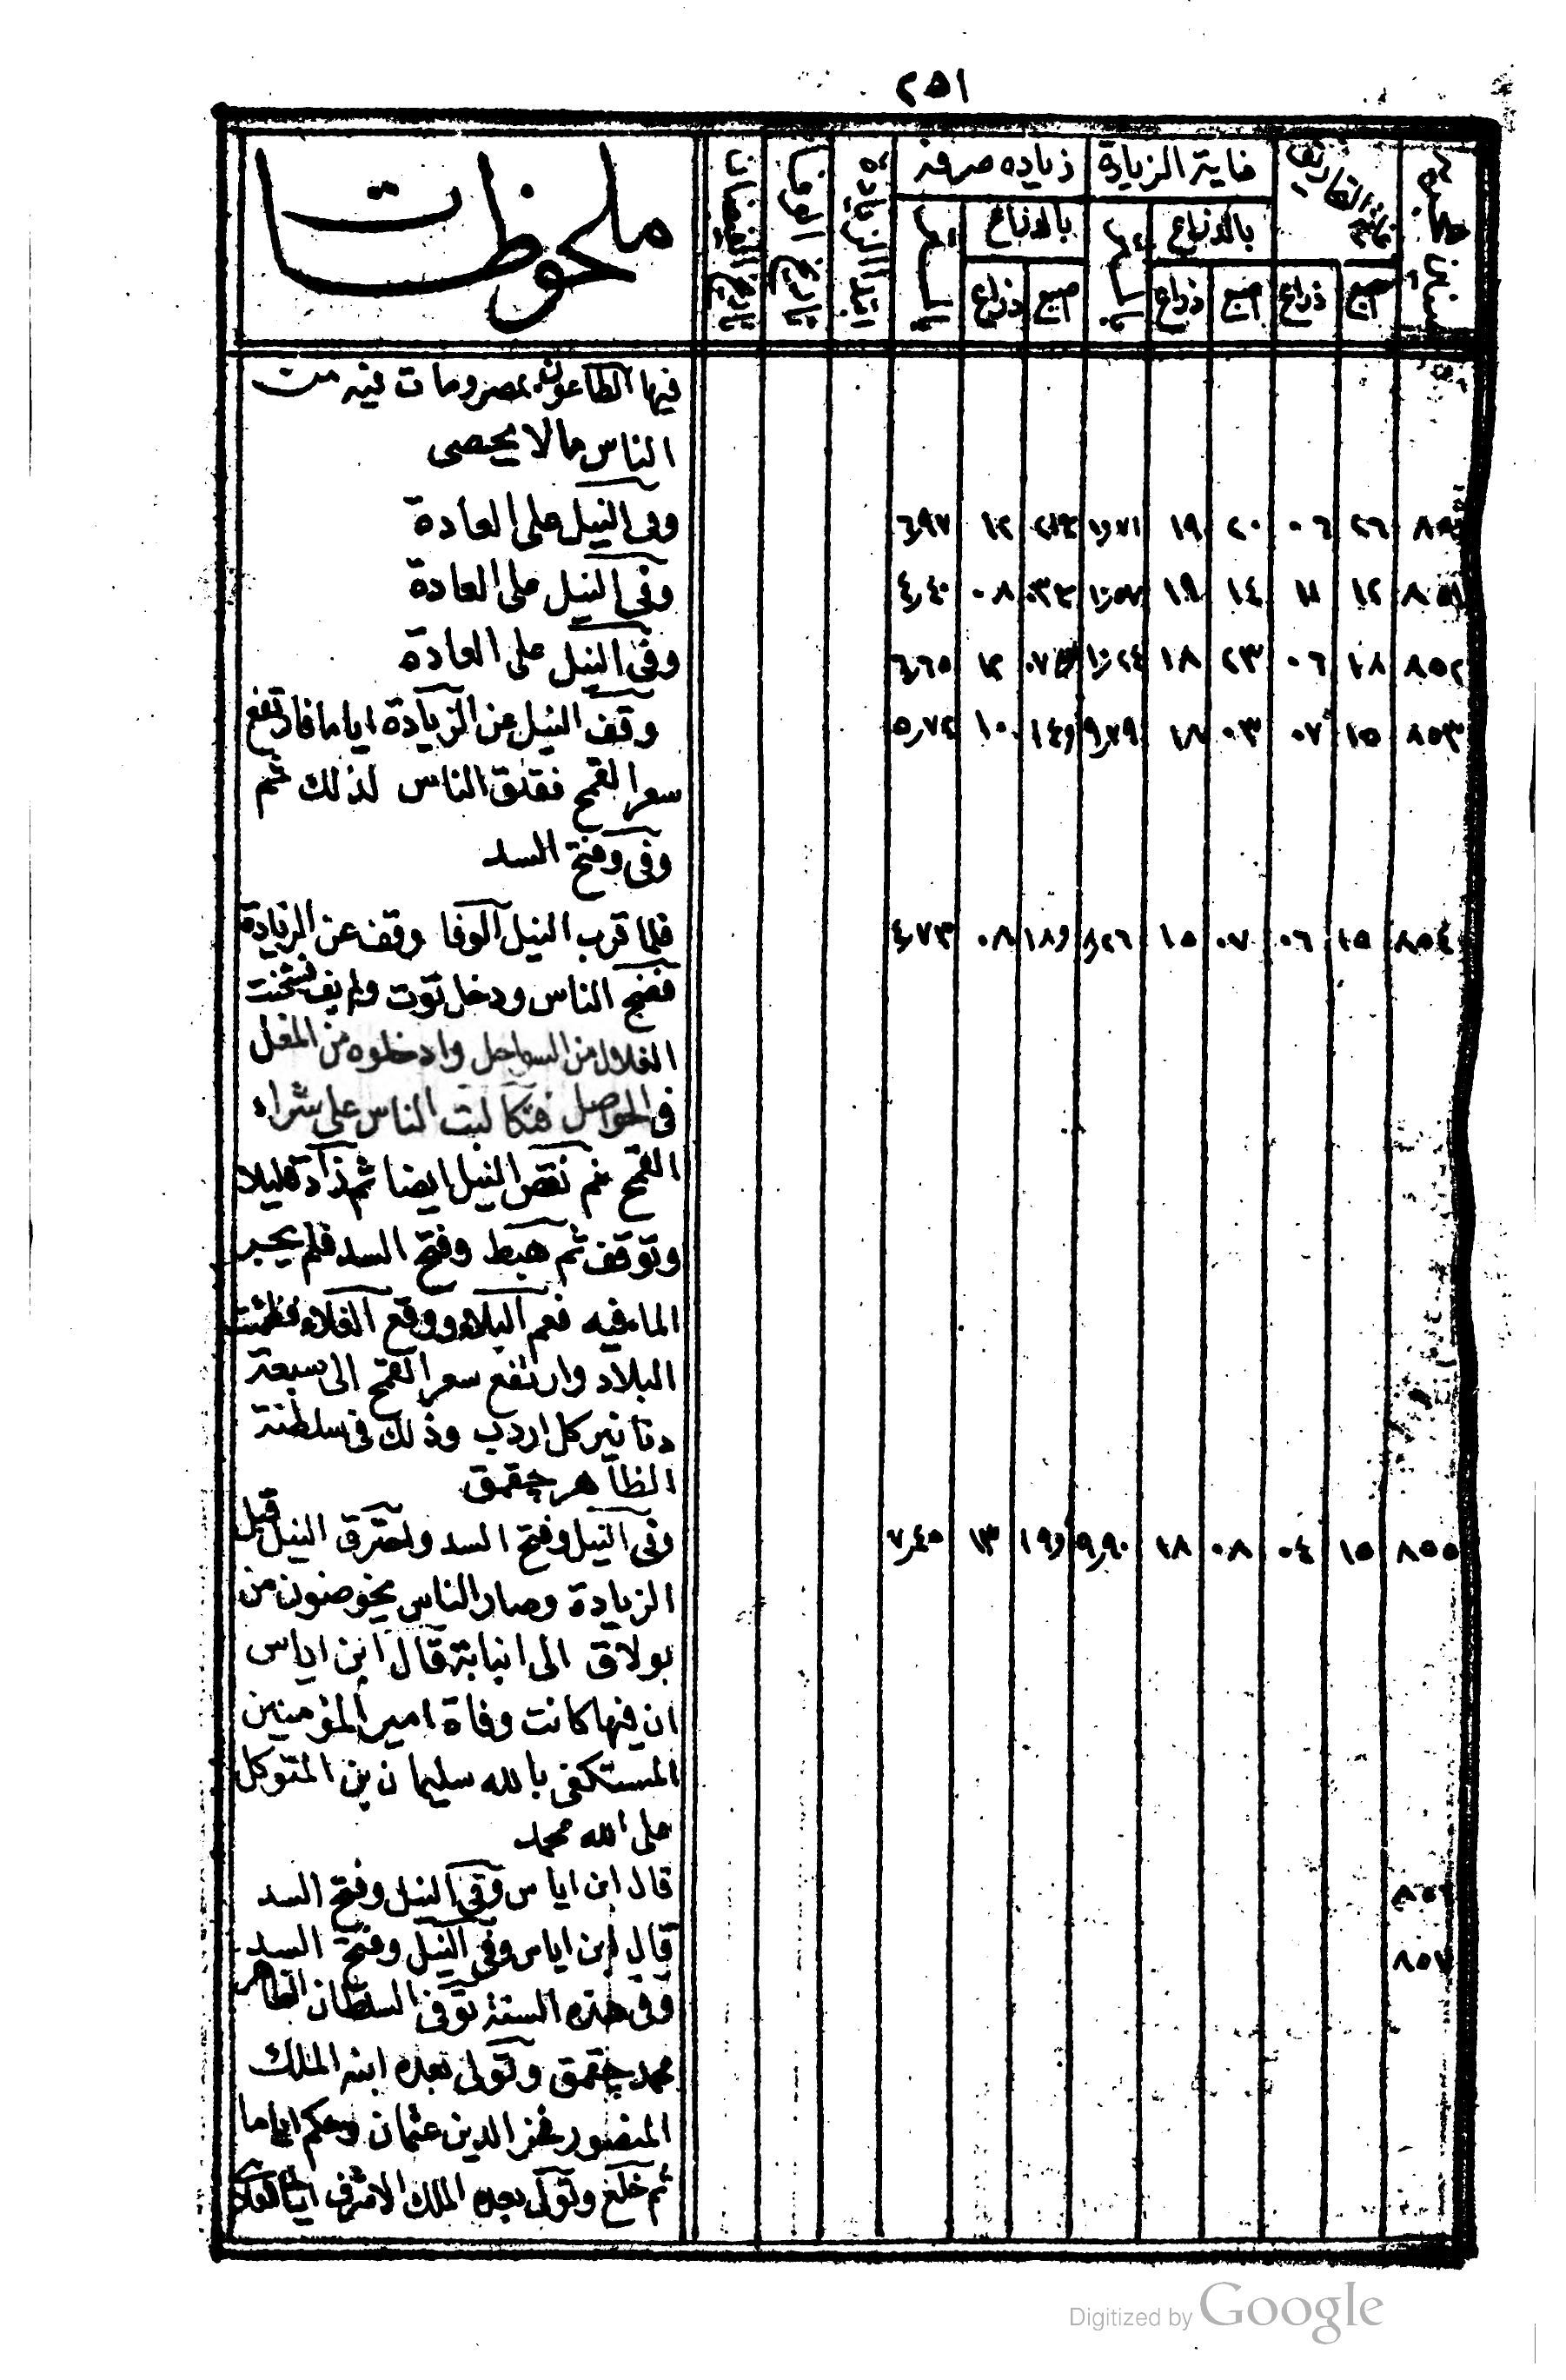 ٢٥١
غاية الزيادة
زياده صرفه
ملحوظات
بالذراع
بالذراع
اصبع
ذراع
اصبع
ذراع
اصبع
ذراع
فيها الطاعون بمصر ومات فيه من
الناس ما لا يحصى
٢٦ ٠٦ ٢٠ ١٩ ١٢ ٦٫٩٧ وفى النيل على العادة
٨٥١ ١٢ ١١ ١٤ ١٩ ١٠٫٥٧ ٠٨ ٤٫٤٠ وفى النيل على العادة
٨٥٢ ١٨ ٠٦ ٢٣ ١٨ ١٠٫٢٤ ١٢ ٦٫٦٥ وفى النيل على العادة
٨٥٣ ١٥ ٠٧ ٠٣ ١٨ ٩٫٧٩ ١٤٫ ١٠ ٥٫٧٢ وقف النيل عن الزيادة اياما فارتفع
سعر القمح فقلق الناس لذلك ثم
وفى وفتح السد
٨٥٤ ١٥ ٠٦ ٠٧ ١٥ ٨٫٢٦ ١٨٫ ٠٨ ٤٫٧٣ فلما قرب النيل الوفا وقف عن الزيادة
فضج الناس ودخل توت ولم يف فشحنت
الغلال من السواحل وادخلوه من المغل
فى الحواصل فتكالبت الناس على شراء
القمح ثم نقص النيل ايضا ثم زاد قليلا
وتوقف ثم هبط وفتح السد فلم يجر
الماء فيه فعم البلاء ووقع الغلاء
البلاد وارتفع سعر القمح الى سبعة
دنانير كل اردب وذلك فى سلطنة
الظاهر جقمق
٨٥٥ ١٥ ٠٤ ٠٨ ١٨ ٩٫٩٠ ١٩٫ ١٣ ٧٫٤٥ وفى النيل وفتح السد واحترق النيل قبل
الزيادة وصار الناس يخوضون من
بولاق الى انبابة قال ابن اياس
ان فيها كانت وفاة امير المؤمنين
المستكفى بالله سليمان بن المتوكل
على الله محمد
٨٥٦ قال ابن اياس وفى النيل وفتح السد
٨٥٧ قال ابن اياس وفى النيل وفتح السد
وفى هذه السنة توفى السلطان الظاهر
محمد جقمق وتولى بعده ابنه الملك
المنصور فخر الدين عثمان وحكم اياما
ثم خلع وتولى بعده الملك الاشرف اينال
Digitized by Google